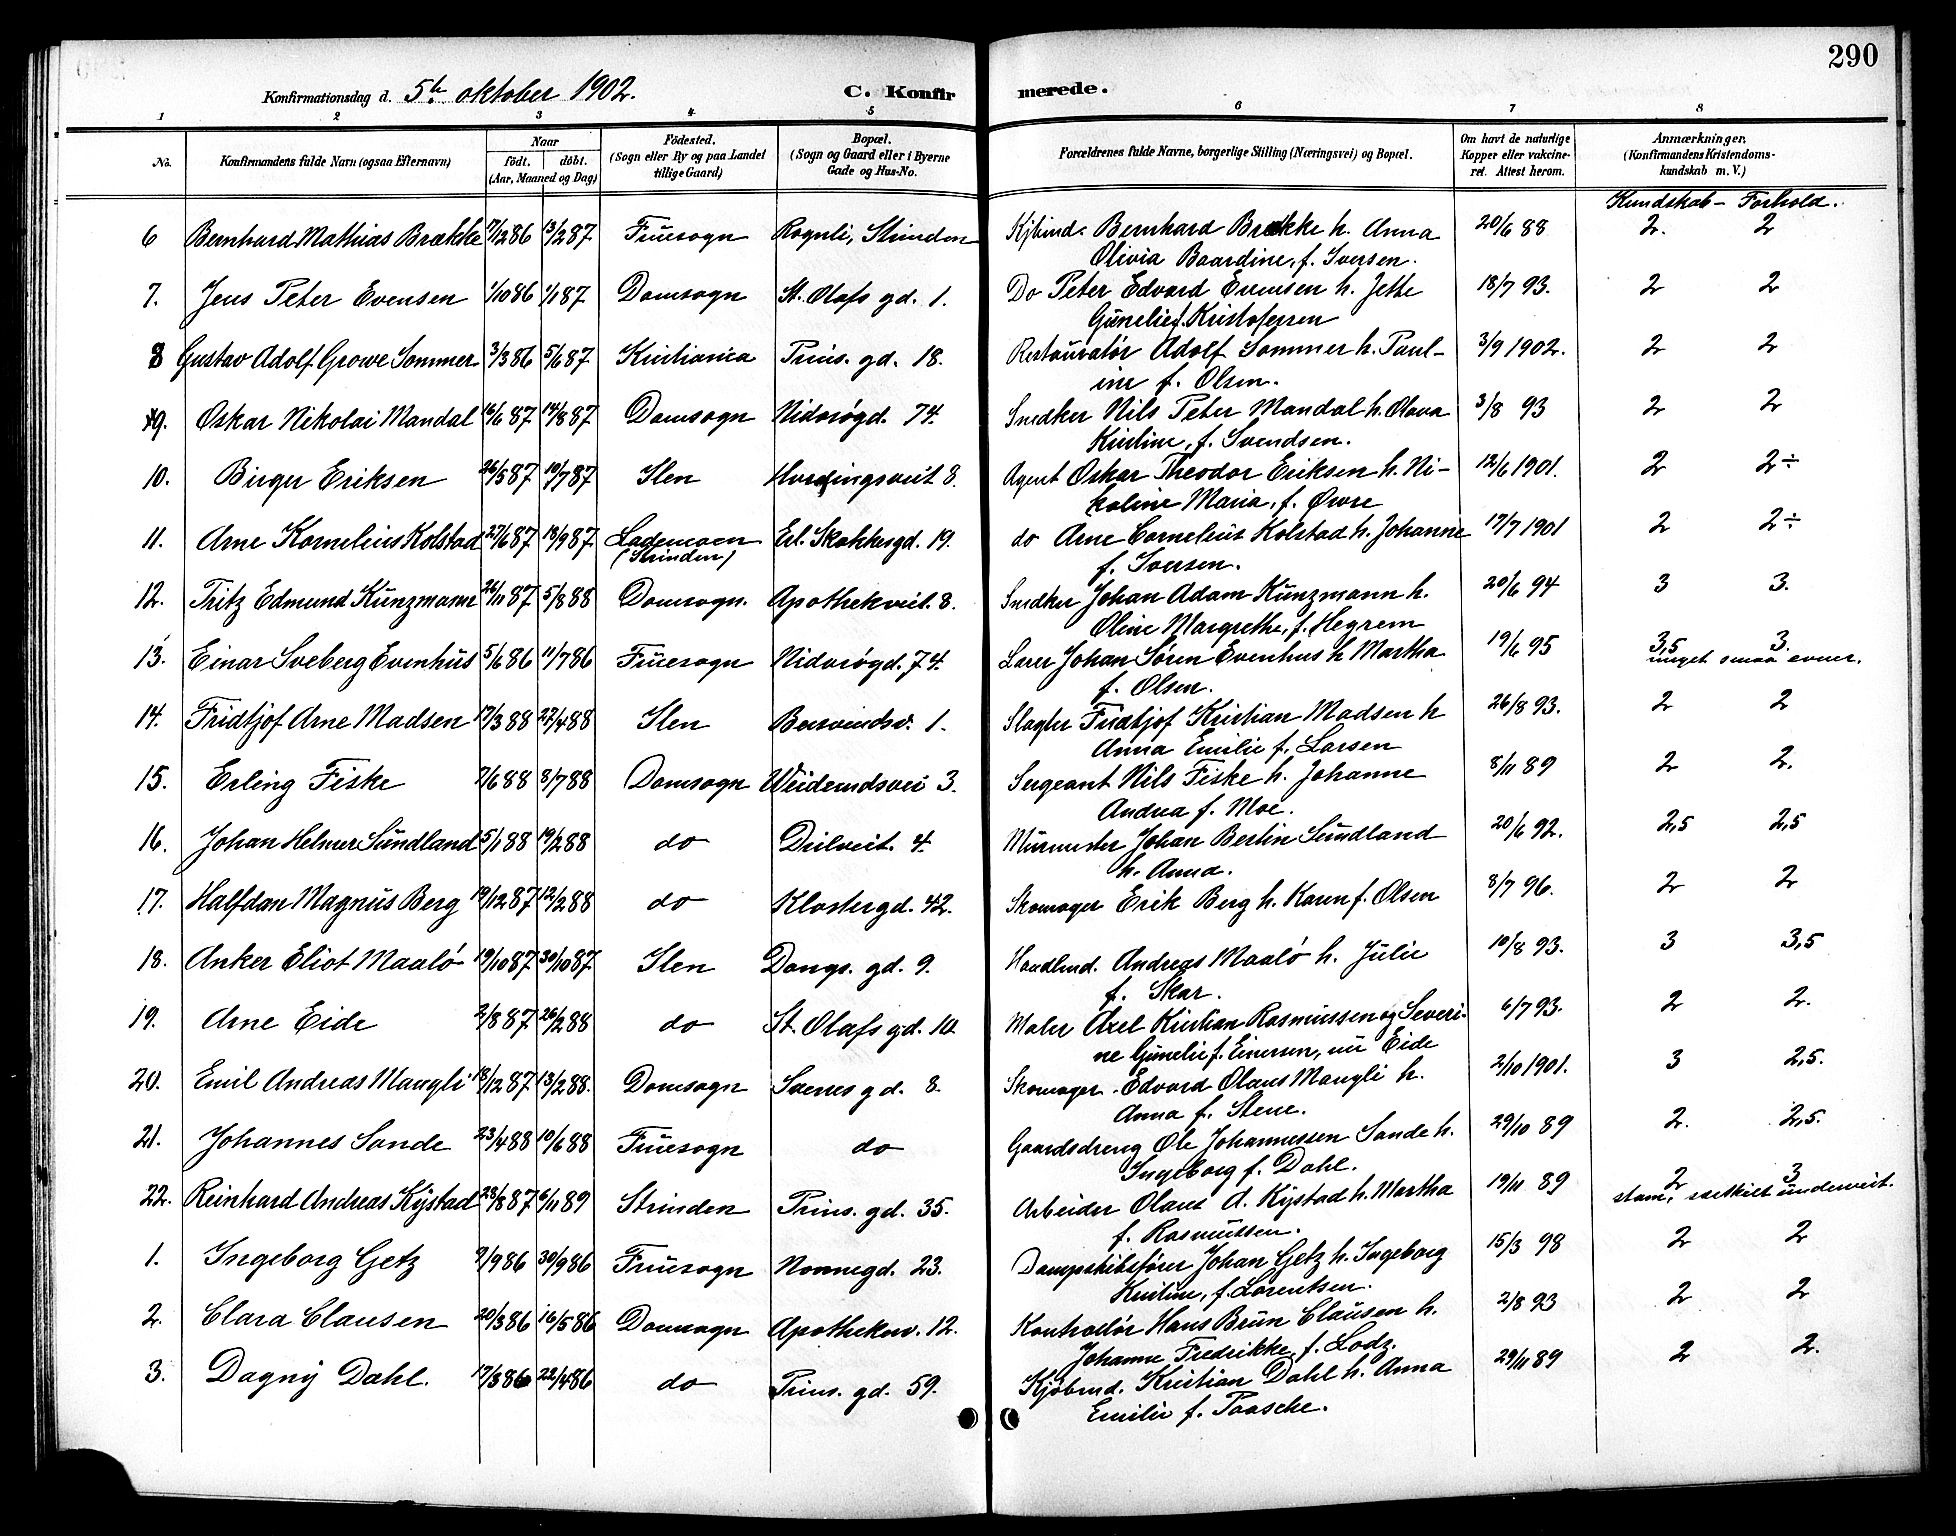 290
Konfirmationsdag d. 5te oktober 1902.
C. Konfirmerede.
1 2 3 4 5 6 7 8
No.
Konfirmandens fulde Navn (ogsaa Efternavn)
Naar
født. døbt.
(Aar, Maaned og Dag)
Fødested.
(Sogn eller By og paa Landet
tillige Gaard)
Bopæl.
(Sogn og Gaard eller i Byerne
Gade og Hus-No.
Forældrenes fulde Navne, borgerlige Stilling (Næringsvei) og Bopæl.
Om havt de naturlige
Kopper eller vakcine-
ret. Attest herom.
Anmærkninger,
(Konfirmandens Kristendoms-
kundskab m. V.)
Kundskab – Forhold.
6 Bernhard Mathias Brække 7/12 86 13/2 87 Fruesogn Rognli, Strinden Kjbmd. Bernhard Brække h. Anna 20/6 88 2. 2
Olivia Baardine, f. Iversen.
7. Jens Peter Evensen 1/10 86 1/1 87 Domsogn St. Olafs gd. 1. Do Peter Edvard Evensen h. Jette 18/7 93. 2 2
Gunelie f. Kristofersen
8 Gustav Adolf Growe Sommer 3/3 86 5/6 87 Kristiania Prins. gd. 18. Restauratør Adolf Sommer h. Paul- 3/9 1902. 2 2
ine f. Olsen.
9. Oskar Nikolai Mandal 16/6 87 14/8 87 Domsogn Nidarøgd. 74. Snedker Nils Peter Mandal h. Olava 3/8 93 2 2
Kristine, f. Svendsen.
10. Birger Eriksen 26/5 87 10/7 87 Ilen Hvedingsveit 8. Agent Oskar Theodor Eriksen h. Ni- 12/6 1901. 2 2÷
koline Maria, f. Øwre
11. Arne Kornelius Kolstad 27/6 87 18/9 87 Lademoen Erl. Skakkesgd. 19. do Arne Cornelius Kolstad h. Johanne 17/7 1901 2 2÷
(Strinden)
f. Iversen.
12. Fritz Edmund Kunzmann 24/11 87 5/8 88 Domsogn. Apothekveit. 8. Snedker Johan Adam Kunzmann h. 20/6 94 3 3.
Oline Margrethe, f. Hegrem
13. Einar Sveberg Evenhus 5/6 86 11/7 86 Fruesogn Nidarøgd. 74. Lærer Johan Søren Evenhus h Martha 19/6 95 3,5 3.
f. Olsen.
meget smaa evner.
14. Fridtjof Arne Madsen 17/3 88 27/4 88 Ilen Bersvendsv. 1. Slagter Fridtjof Kristian Madsen h 26/8 93. 2 2
Anna Emilie f. Larsen
15. Erling Fiske 7/6 88 8/7 88 Domsogn Weidemdsvei 3. Sergeant Nils Fiske h. Johanne 8/11 89 2 2.
Andrea f. Moe.
16. Johan Helmer Sundland 5/1 88 19/2 88 do Duilveit. 4. Murmester Johan Bertin Sundland 20/6 92. 2,5 2,5
h. Anna.
17. Halfdan Magnus Berg 19/12 87 12/2 88 do Klostergd. 42. Skomager Erik Berg h. Karen f. Olsen 8/7 96. 2 2
18. Anker Eliot Maalø 19/10 87 30/10 87. Ilen Dangs. gd. 9. Handlend. Andreas Maalø h. Julie 10/8 93. 3 3,5
f. Skar.
19. Arne Eide 2/8 87 26/2 88 do St. Olafs gd. 10. Maler Axel Kristian Rasmussen og Severi- 6/7 93. 2 2.
ne Gunelie f. Einersen, nu Eide
20. Emil Andreas Mangli 13/12 87 13/2 88. Domsogn Svenes gd. 8. Skomager. Edvard Olaus Mangli h. 2/10 1901. 3 2,5.
Anna f. Stene.
21. Johannes Sande 23/4 88 10/6 88 Fruesogn do Gaardsdreng Ole Johannessen Sande h. 29/10 89 2. 2,5.
Ingeborg f. Dahl.
22. Reinhard Andreas Kystad 28/8 87 6/11 89 Strinden Prins. gd. 35. Arbeider Olaus A. Kystad h. Martha 19/11 89 2 3
f. Rasmussen.
stam, særskilt underveist.
1. Ingeborg Getz 9/9 86 30/9 86 Fruesogn Nonnegd. 23. Dampskibsfører Johan Getz h. Ingeborg 15/3 98 2 2
Kristine, f. Lorentsen.
2. Clara Clausen 20/3 86 16/5 86 Domsogn Apothekerv. 12. Kontrollør Hans Brun Clausen h. 2/8 93 2 2
Johanne Fredrikke, f. Lodz.
3. Dagny Dahl. 17/3 86 22/4 86 do Prins. gd. 59. Kjøbmd. Kristian Dahl h. Anna 29/11 89 2 2.
Emilie f. Paasche.